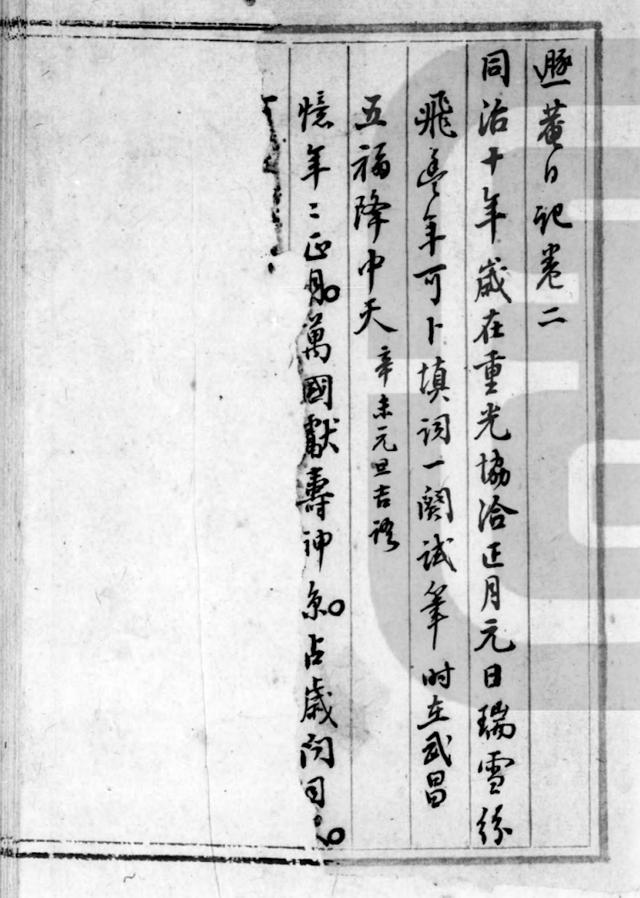 遯菴日記卷二
同治十年歲在重光協洽正月元日瑞雪紛
飛豐年可卜填詞一闋試筆時在武昌
五福降中天 辛未元旦吉語
憶年〻正月。萬國獻壽神京。占歲問